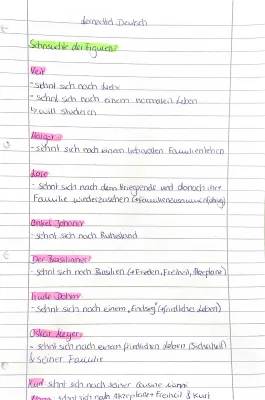 Lernzettel Deutsch
Sehnsüchte der Figuren
Veit
- sehnt sich nach Liebe
- sehnt sich nach einem normalen Leben
↳ will studieren
Margot
- sehnt sich nach einem liebevollen Familienleben
- sehnt sich nach dem Kriegsende und danach ihre
Familie wiederzusehen (→ Familienzusammenführung)
Onkel Johann
- sehnt sich nach Ruhestand
Der Brasilianer
- sehnt sich nach Brasilien (→ Frieden, Freiheit, Akzeptanz)
Trude Dohm
- sehnt sich nach einem „Endsieg“ (friedliches Leben)
Oskar Meyer
- sehnt sich nach einem friedlichen Leben (Sicherheit)
& seiner Familie
Kurt sehnt sich nach seiner Cousine Nanni
sehnt sich nach Akzeptanz + Freiheit & Kurt